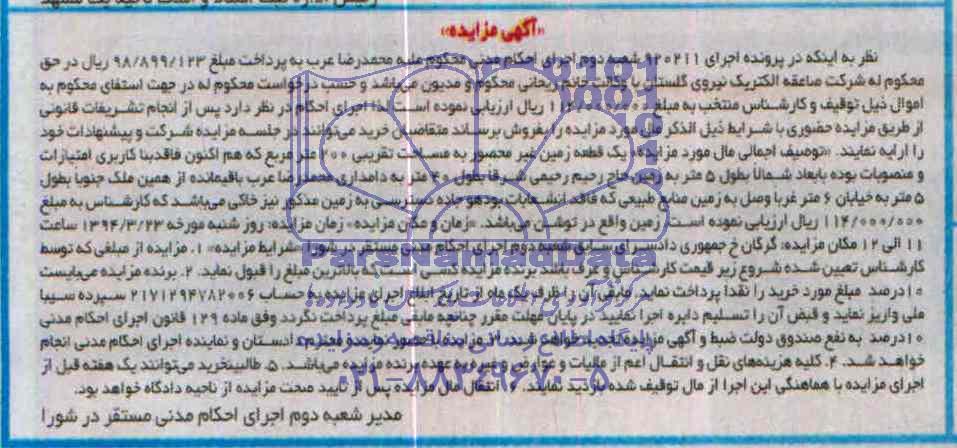 رئیس اداره ثبت اسناد و املاک ناحیه یک مشهد
«آگهی مزایده»
نظر به اینکه در پرونده اجرای ۹۲۰۲۱۱ شعبه دوم اجرای احکام مدنی محکوم علیه محمدرضا عرب به پرداخت مبلغ ۹۸/۸۹۹/۱۲۳ ریال در حق
محکوم له شرکت صاعقه الکتریک نیروی گلستان با وکالت خانم ریحانی محکوم و مدیون می‌باشد و حسب درخواست محکوم له در جهت استفای محکوم به
اموال ذیل توقیف و کارشناس منتخب به مبلغ ریال ارزیابی نموده است لذا اجرای احکام در نظر دارد پس از انجام تشریفات قانونی
از طریق مزایده حضوری با شرایط ذیل الذکر مال مورد مزایده را بفروش برساند متقاضیان خرید می‌توانند در جلسه مزایده شرکت و پیشنهادات خود
را ارایه نمایند. «توصیف اجمالی مال مورد مزایده» یک قطعه زمین غیر محصور به مساحت تقریبی ۲۰۰ متر مربع که هم اکنون فاقد بنا کاربری امتیازات
و منصوبات بوده بابعاد شمالاً بطول ۵ متر به زمین حاج رحیم رحیمی شرقاً بطول ۴۰ متر به دامداری محمدرضا عرب باقیمانده از همین ملک جنوباً بطول
۵ متر به خیابان ۶ متر غرباً وصل به زمین منابع طبیعی که فاقد انشعابات بوده و جاده دسترسی به زمین مذکور نیز خاکی می‌باشد که کارشناس به مبلغ
۱۱۴/۰۰۰/۰۰۰ ریال ارزیابی نموده است. زمین واقع در توشن می‌باشد. «زمان و مکان مزایده» زمان مزایده: روز شنبه مورخه ۱۳۹۴/۳/۲۳ ساعت
۱۱ الی ۱۲ مکان مزایده: گرگان خ جمهوری دادسرای سابق شعبه دوم اجرای احکام مدنی مستقر در شورا «شرایط مزایده» ۱. مزایده از مبلغی که توسط
کارشناس تعیین شده شروع زیر قیمت کارشناس و عرف باشد برنده مزایده کسی است که بالاترین مبلغ را قبول نماید. ۲. برنده مزایده می‌بایست
۱۰ درصد مبلغ مورد خرید را نقداً پرداخت نماید. مابقی آن را ظرف یک ماه از تاریخ ابلاغ اجرای مزایده به حساب ۲۱۷۱۲۹۴۷۸۲۰۰۶ سپرده سیبا
ملی واریز نماید و قبض آن را تسلیم دایره اجرا نمایید در پایان مهلت مقرر چنانچه مابقی مبلغ پرداخت نگردد وفق ماده ۱۲۹ قانون اجرای احکام مدنی
۱۰ درصد به نفع صندوق دولت ضبط و آگهی مزایده تجدید خواهد شد. ۳. مزایده با حضور نماینده محترم دادستان و نماینده اجرای احکام مدنی انجام
خواهد شد. ۴. کلیه هزینه‌های نقل و انتقال اعم از مالیات و عوارض و غیره به عهده برنده مزایده می‌باشد. ۵. طالبین خرید می‌توانند یک هفته قبل از
اجرای مزایده با هماهنگی این اجرا از مال توقیف شده بازدید نمایند. ۶. انتقال مال مزایده پس از تایید صحت مزایده از ناحیه دادگاه خواهد بود.
مدیر شعبه دوم اجرای احکام مدنی مستقر در شورا
ParsNamadData
پایگاه اطلاع رسانی مناقصه و مزایده
۰۲۱-۸۸۳۴۹۶۷۰-۵